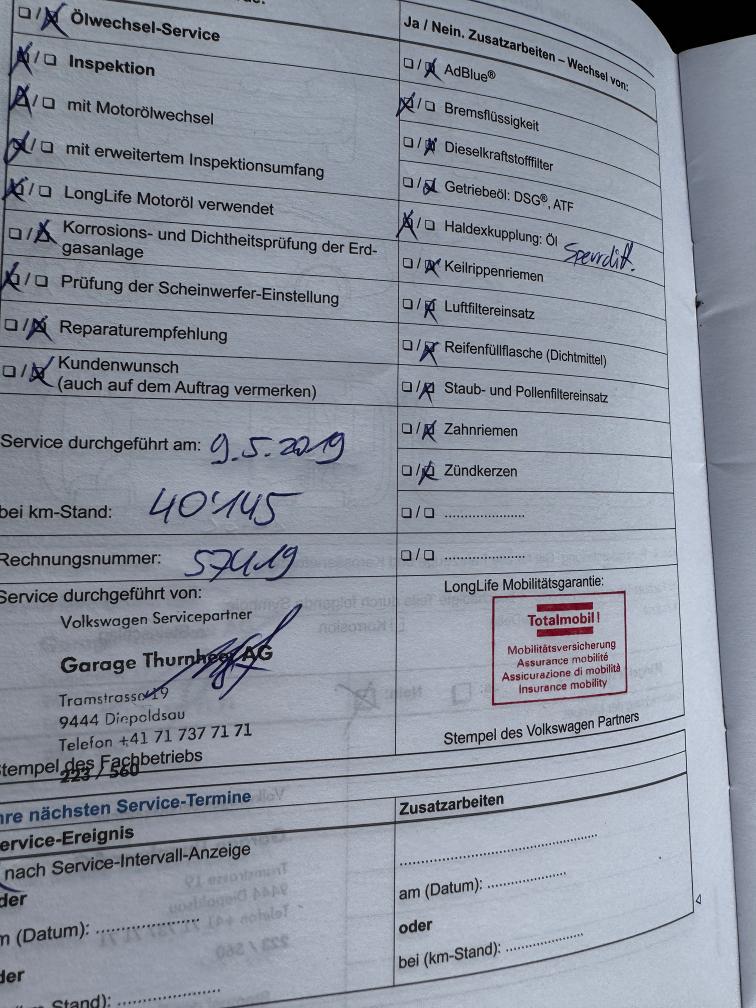 Ölwechsel-Service
Inspektion
mit Motorölwechsel
mit erweitertem Inspektionsumfang
LongLife Motoröl verwendet
Korrosions- und Dichtheitsprüfung der Erd-
gasanlage
Prüfung der Scheinwerfer-Einstellung
Reparaturempfehlung
Kundenwunsch
(auch auf dem Auftrag vermerken)
Service durchgeführt am: 9.5.2019
bei km-Stand: 40'145
Rechnungsnummer: 57419
Service durchgeführt von:
Volkswagen Servicepartner
Garage Thurnheer AG
Tramstrasse 19
9444 Diepoldsau
Telefon +41 71 737 71 71
Stempel des Fachbetriebs
223 / 560
Ja / Nein. Zusatzarbeiten – Wechsel von:
AdBlue®
Bremsflüssigkeit
Dieselkraftstofffilter
Getriebeöl: DSG®, ATF
Haldexkupplung: Öl Sperrdiff.
Keilrippenriemen
Luftfiltereinsatz
Reifenfüllflasche (Dichtmittel)
Staub- und Pollenfiltereinsatz
Zahnriemen
Zündkerzen
....................
....................
LongLife Mobilitätsgarantie:
Totalmobil!
Mobilitätsversicherung
Assurance mobilité
Assicurazione di mobilità
Insurance mobility
Stempel des Volkswagen Partners
hre nächsten Service-Termine
ervice-Ereignis
nach Service-Intervall-Anzeige
der
m (Datum): ....................
der
km-Stand): ....................
Zusatzarbeiten
........................................
am (Datum): ................
oder
bei (km-Stand): ................